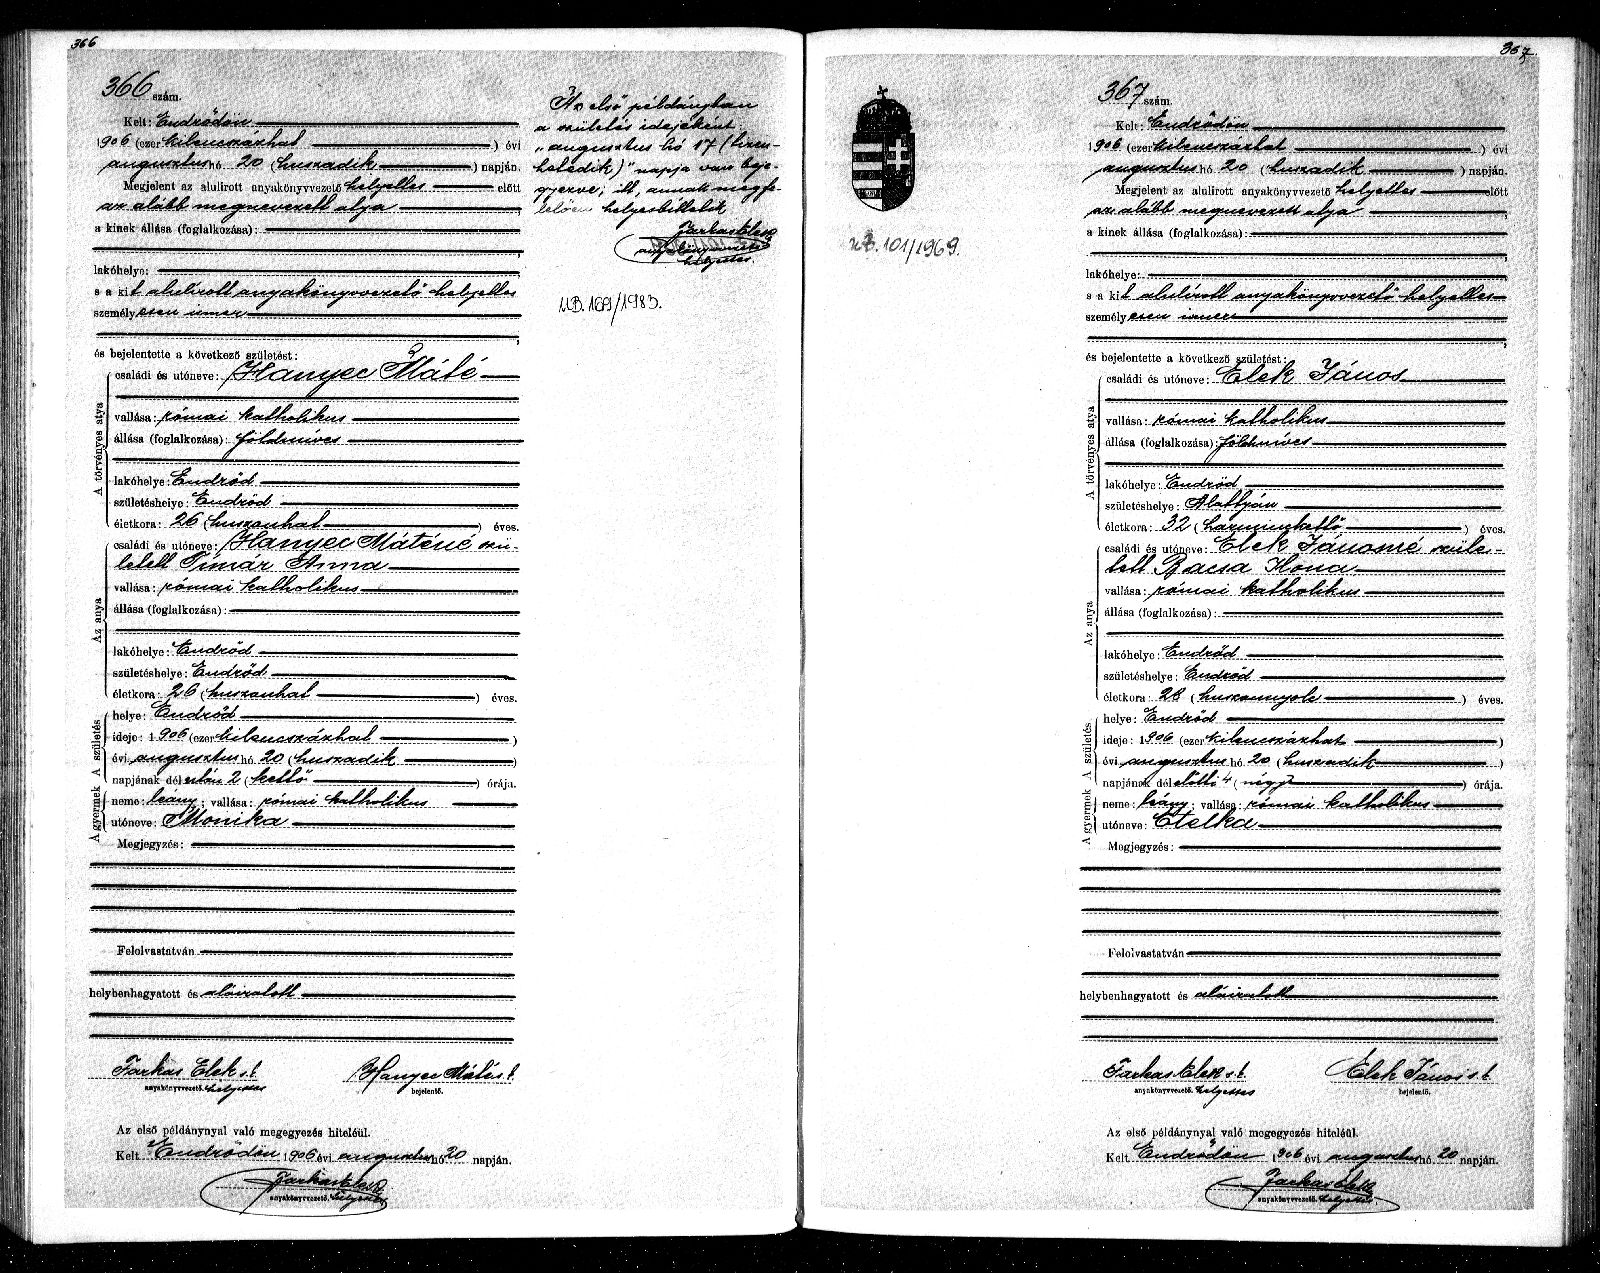 366
366 szám.
Kelt: Endrődön
1906 (ezer kilencszázhat ) évi
augusztus hó 20 (huszadik ) napján.
Megjelent az alulirott anyakönyvvezető helyettes előtt
az alább megnevezett atya
a kinek állása (foglalkozása):
lakóhelye:
s a kit alulírott anyakönyvvezető helyettes
személyesen ismer
és bejelentette a következő születést:
A törvényes atya
családi és utóneve: Hanyec Máté
vallása: római katholikus
állása (foglalkozása): földmíves
lakóhelye: Endrőd
születéshelye: Endrőd
életkora: 26 (huszonhat ) éves.
Az anya
családi és utóneve: Hanyec Máténé szü-
letett Tímár Anna
vallása: római katholikus
állása (foglalkozása):
lakóhelye: Endrőd
születéshelye: Endrőd
életkora: 26 (huszonhat ) éves.
A születés
helye: Endrőd
ideje: 1906 (ezer kilencszázhat )
évi augusztus hó 20 (huszadik )
napjának délután 2 (kettő ) órája.
A gyermek
neme: leány; vallása: római katholikus
utóneve: Monika
Megjegyzés:
Felolvastatván
helybenhagyatott és aláíratott
Farkas Elek s.k. Hanyec Máté s.k.
anyakönyvvezető. helyettes bejelentő.
Az első példánynyal való megegyezés hiteléül.
Kelt Endrődön 1906 évi augusztus hó 20 napján.
Farkas Elek
anyakönyvvezető. helyettes
Az első példányban
a születés idejeként
„augusztus hó 17 (tizen-
hetedik)" napja van beje-
gyezve, itt, annak megfe-
lelően helyesbíttetik
Farkas Elek
anyakönyvvezető
helyettes.
UB. 169/1983.
367
367 szám.
Kelt: Endrődön
1906 (ezer kilencszázhat ) évi
augusztus hó 20 (huszadik ) napján.
Megjelent az alulirott anyakönyvvezető helyettes előtt
az alább megnevezett atya
a kinek állása (foglalkozása):
lakóhelye:
s a kit alulírott anyakönyvvezető helyettes
személyesen ismer
és bejelentette a következő születést:
A törvényes atya
családi és utóneve: Elek János
vallása: római katholikus
állása (foglalkozása): földmíves
lakóhelye: Endrőd
születéshelye: Alattyán
életkora: 32 (harminckettő ) éves.
Az anya
családi és utóneve: Elek Jánosné szüle-
tett Bacsa Ilona
vallása: római katholikus
állása (foglalkozása):
lakóhelye: Endrőd
születéshelye: Endrőd
életkora: 28 (huszonnyolc ) éves.
A születés
helye: Endrőd
ideje: 1906 (ezer kilencszázhat )
évi augusztus hó 20 (huszadik )
napjának délelőtti 4 (négy ) órája.
A gyermek
neme: leány; vallása: római katholikus
utóneve: Etelka
Megjegyzés:
Felolvastatván
helybenhagyatott és aláíratott
Farkas Elek s.k. Elek János s.k.
anyakönyvvezető. helyettes bejelentő.
Az első példánynyal való megegyezés hiteléül.
Kelt Endrődön 1906 évi augusztus hó 20 napján.
Farkas Elek
anyakönyvvezető. helyettes
UB. 101/1969.